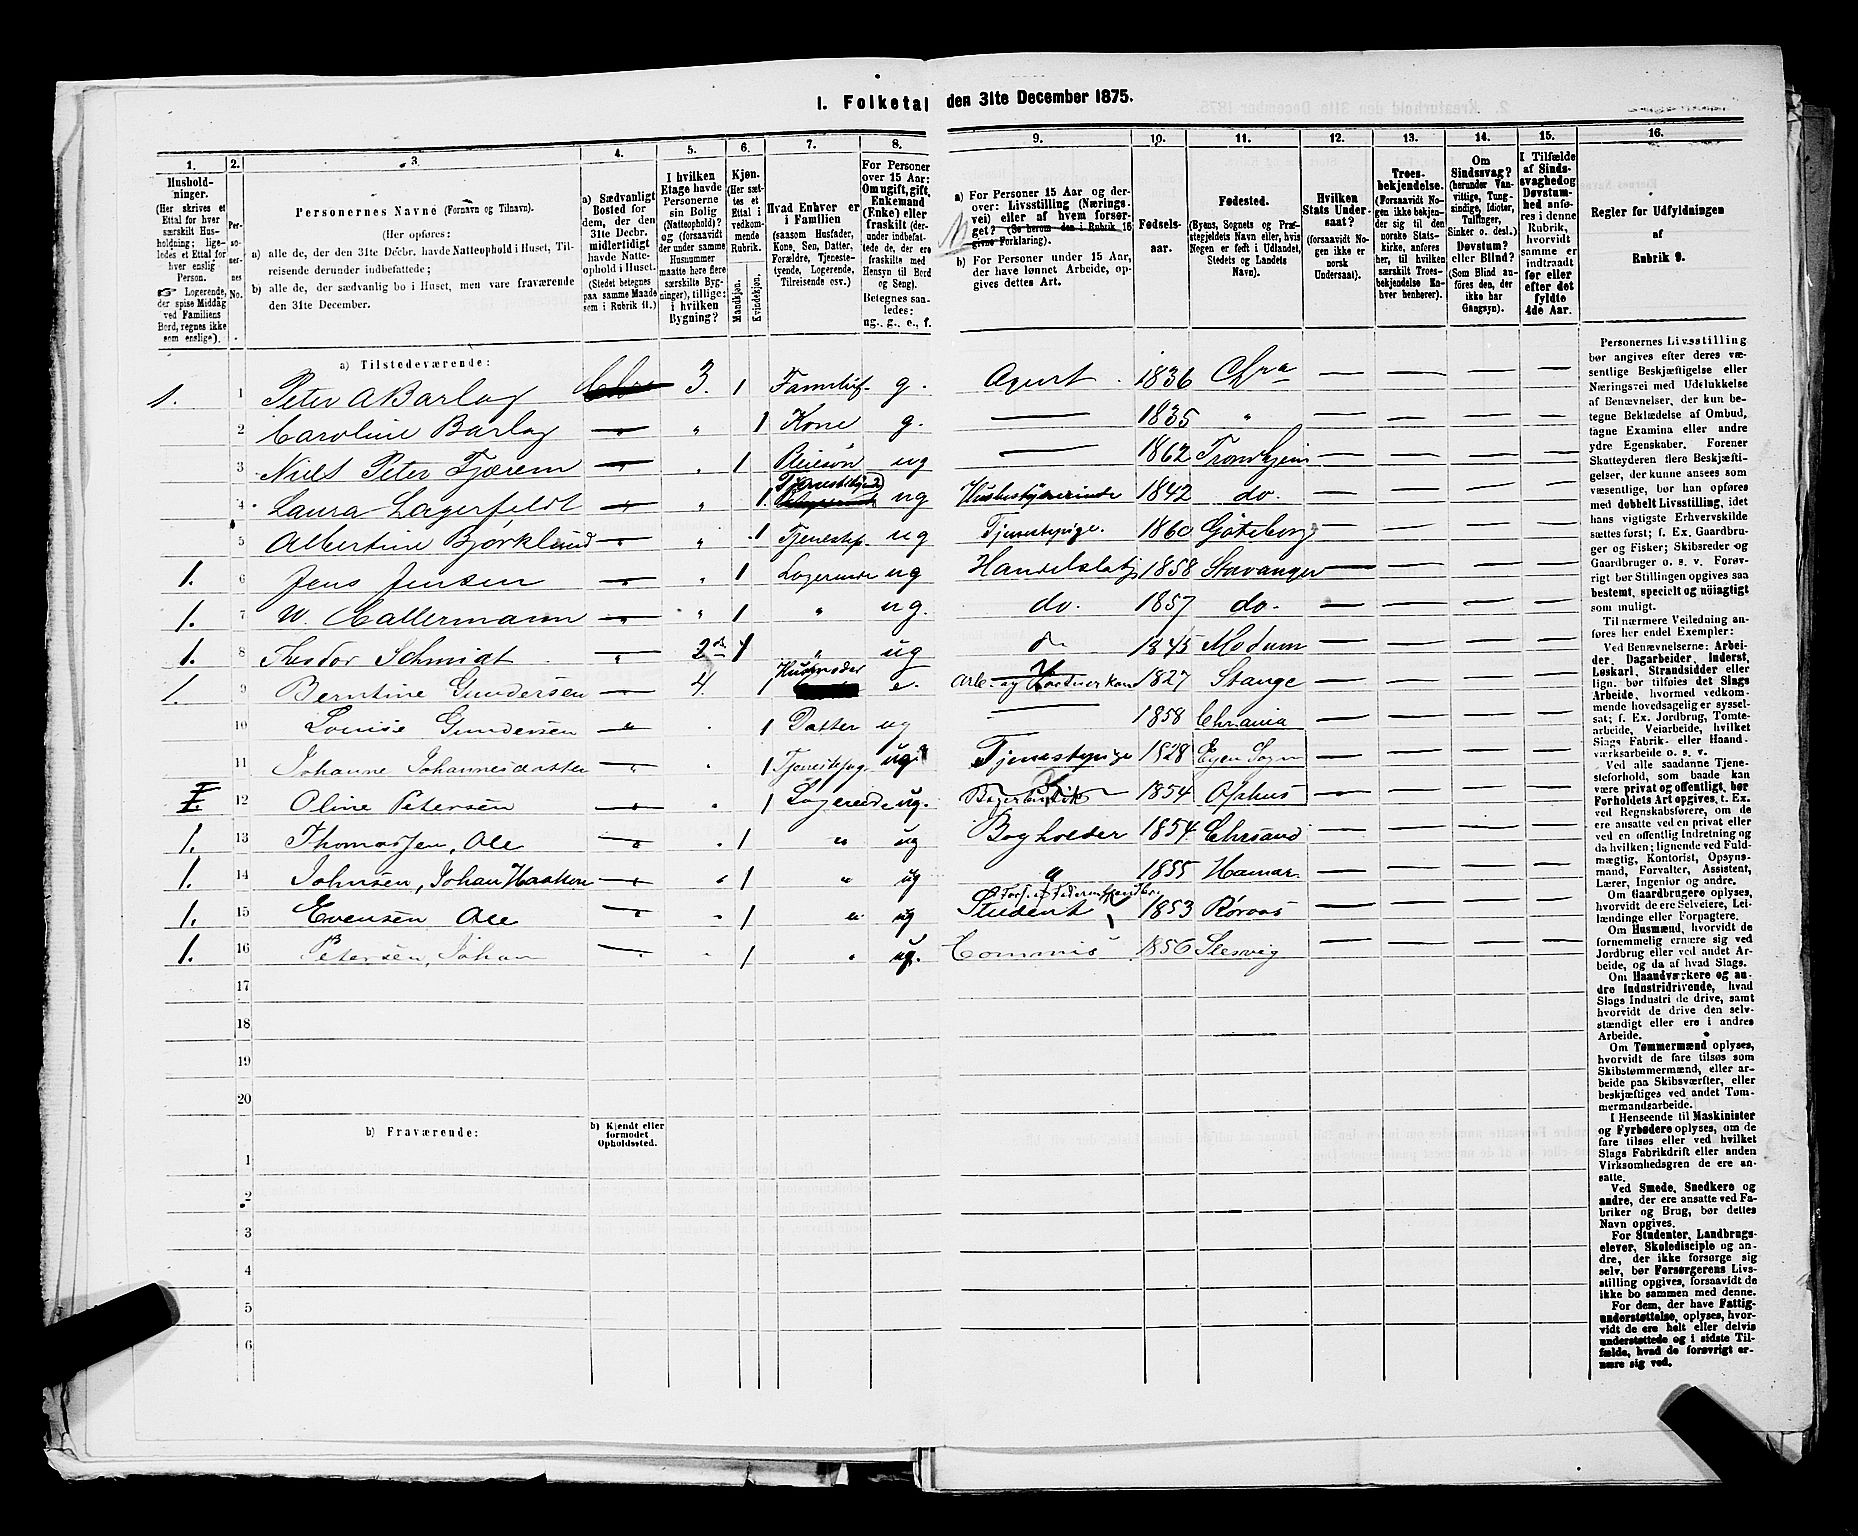 1. Folketal den 31te December 1875.
1. 2. 3. 4. 5. 6. 7. 8. 9. 10. 11. 12. 13. 14. 15. 16.
Hushold-
ninger.
(Her skrives et
Ettal for hver
særskilt Hus-
holdning; lige-
ledes et Ettal for
hver enslig
Person.
☞ Logerende,
der spise Middag
ved Familiens
Bord, regnes ikke
som enslige).
Per-
soner-
nes
No.
Personernes Navne (Fornavn og Tilnavn).
(Her opføres:
a) alle de, der den 31te Decbr. havde Natteophold i Huset, Til-
reisende derunder indbefattede;
b) alle de, der sædvanlig bo i Huset, men vare fraværende
den 31te December.
a) Sædvanligt
Bosted for
dem, der den
31te Decbr.
midlertidigt
havde Natte-
ophold i Huset.
(Stedet betegnes
paa samme Maade
som i Rubrik 11.)
I hvilken
Etage havde
Personerne
sin Bolig
(Natteophold)?
og (forsaavidt
der under samme
Husnummer
maatte høre flere
særskilte Byg-
ninger), tillige:
i hvilken
Bygning?
Kjøn.
(Her sæt-
tes et
Ettal i
vedkom-
mende
Rubrik.
Mandkjøn.
Kvindekjøn.
Hvad Enhver er
i Familien
(saasom Husfader,
Kone, Søn, Datter,
Forældre, Tjeneste-
tyende, Logerende,
Tilreisende osv.)
For Personer
over 15 Aar:
Om ugift, gift,
Enkemand
(Enke) eller
fraskilt (der-
under indbefat-
tede de, der ere
fraskilte med
Hensyn til Bord
og Seng).
Betegnes saa-
ledes:
ug., g., e., f.
a) For Personer 15 Aar og der-
over: Livsstilling (Nærings-
vei) eller af hvem forsør-
get? (Se herom den i Rubrik 16
givne Forklaring).
b) For Personer under 15 Aar,
der have lønnet Arbeide, op-
gives dettes Art.
Fødsels-
aar.
Fødested.
(Byens, Sognets og Præ-
stegjeldets Navn eller, hvis
Nogen er født i Udlandet,
Stedets og Landets
Navn).
Hvilken
Stats Under-
saat?
(forsaavidt No-
gen ikke er
norsk
Undersaat).
Troes-
bekjendelse.
(Forsaavidt No-
gen ikke bekjen-
der sig til den
norske Stats-
kirke, anføres
her, til hvilken
særskilt Troes-
bekjendelse En-
hver henhører).
Om
Sindssvag?
(herunder Van-
vittige, Tung-
sindige, Idioter,
Tullinger,
Sinker o. desl.)
Døvstum?
eller Blind?
(Som Blind an-
føres den, der
ikke har
Gangsyn).
I Tilfælde
af Sinds-
svaghed og
Døvstum-
hed anfø-
res i denne
Rubrik,
hvorvidt
samme er
indtraadt
før eller
efter det
fyldte
4de Aar.
Regler for Udfyldningen
af
Rubrik 9.
a) Tilstedeværende:
1. 1 Peter A Barlag 3. 1 g. Agent 1836 Chra
2 Caroline Barlag — „ 1 Kone g. — 1835 „ — — — —
3 Niels Peter Fjærem — „ 1 Pleiesøn ug — 1862 Trondhjem — — — —
4 Laura Lagerfeldt — „ 1 Tjenestetyende ug Husbestyrerinde 1842 do. — — — —
5 Albertine Bjørklund — „ 1 Tjenestep. ug Tjenestepige. 1860 Göteborg — — — —
1. 6 Jens Jensen — „ 1 Logerende ug 1858 Stavanger — — — —
1. 7 W. Callermann — „ 1 „ ug. do. 1857 do. — — — —
1. 8 Theodor Schmidt — 1 „ ug 1845 Modum — — — —
1. 9 Berntine Gundersen — 4. 1 Husmoder e. 1827 Stange — — — —
10 Louise Gundersen — 1 Datter ug — 1858 Chrania — — — —
11 Johanne Johannesdatter — 1 ug. Tjenestepige 1828 — — — —
12 Oline Petersen — 1 Logerende ug. 1854 — — — —
1. 13 Thomassen, Ole — 1 „ ug Bogholder 1854 Chrsand — — — —
1. 14 Johnsen, Johan Haaken — 1 „ ug „ 1855 Hamar — — — —
1. 15 Evensen Ole — 1 „ ug Student 1853 Røraas — — — —
1. 16 Petersen, Johan — 1 „ ug. Commis 1856 Slesvig — — — —
17
18
19
20
b) Fraværende:
b) Kjendt eller
formodet
Opholdssted.
1
2
3
4
5
6
Personernes Livsstilling
bør angives efter deres væ-
sentlige Beskjæftigelse eller
Næringsvei med Udelukkelse
af Benævnelser, der kun be-
tegne Beklædelse af Ombud,
tagne Examina eller andre
ydre Egenskaber. Forener
Skatteyderen flere Beskjæfti-
gelser, der kunne ansees som
væsentlige, bør han opføres
med dobbelt Livsstilling, idet
hans vigtigste Erhvervskilde
sættes først; f. Ex. Gaardbru-
ger og Fisker; Skibsreder og
Gaardbruger o. s. v. Forøv-
rigt bør Stillingen opgives saa
bestemt, specielt og nøiagtigt
som muligt.
Til nærmere Veiledning an-
føres her endel Exempler:
Ved Benævnelserne: Arbei-
der, Dagarbeider, Inderst,
Løskarl, Strandsidder eller
lign. bør tilføies det Slags
Arbeide, hvormed vedkom-
mende hovedsagelig er syssel-
sat; f. Ex. Jordbrug, Tomte-
arbeide, Veiarbeide, hvilket
Slags Fabrik- eller Haand-
værksarbeide o. s. v.
Ved alle saadanne Tjene-
steforhold, som baade kan
være privat og offentligt, bør
Forholdets Art opgives, t. Ex.
ved Regnskabsførere, om de
ere ansatte ved en privat eller
ved en offentlig Indretning og
da hvilken; lignende ved Fuld-
mægtig, Kontorist, Opsyns-
mand, Forvalter, Assistent,
Lærer, Ingeniør og andre.
Om Gaardbrugere oplyses,
hvorvidt de ere Selveiere, Lei-
lændinge eller Forpagtere.
Om Husmænd, hvorvidt de
fornemmelig ernære sig ved
Jordbrug eller ved andet Ar-
beide, og da af hvad Slags.
Om Haandværkere og an-
dre Industridrivende, hvad
Slags Industri de drive, samt
hvorvidt de drive den selv-
stændigt eller ere i andres
Arbeide.
Om Tømmermænd oplyses,
hvorvidt de fare tilsøs som
Skibstømmermænd, eller ar-
beide paa Skibsværfter, eller
beskjæftiges ved andet Tøm-
mermandsarbeide.
I Henseende til Maskinister
og Fyrbødere oplyses, om de
fare tilsøs eller ved hvilket
Slags Fabrikdrift eller anden
Virksomhedsgren de ere an-
satte.
Ved Smede, Snedkere og
andre, der ere ansatte ved Fa-
briker og Brug, bør dettes
Navn opgives.
For Studenter, Landbrugs-
elever, Skoledisciple og an-
dre, der ikke forsørge sig
selv, bør Forsørgerens Livs-
stilling opgives, forsaavidt de
ikke bo sammen med denne.
For dem, der have Fattig-
understøttelse, oplyses, hvor-
vidt de ere helt eller delvis
understøttede og i sidste Til-
fælde, hvad de forøvrigt er-
nære sig ved.